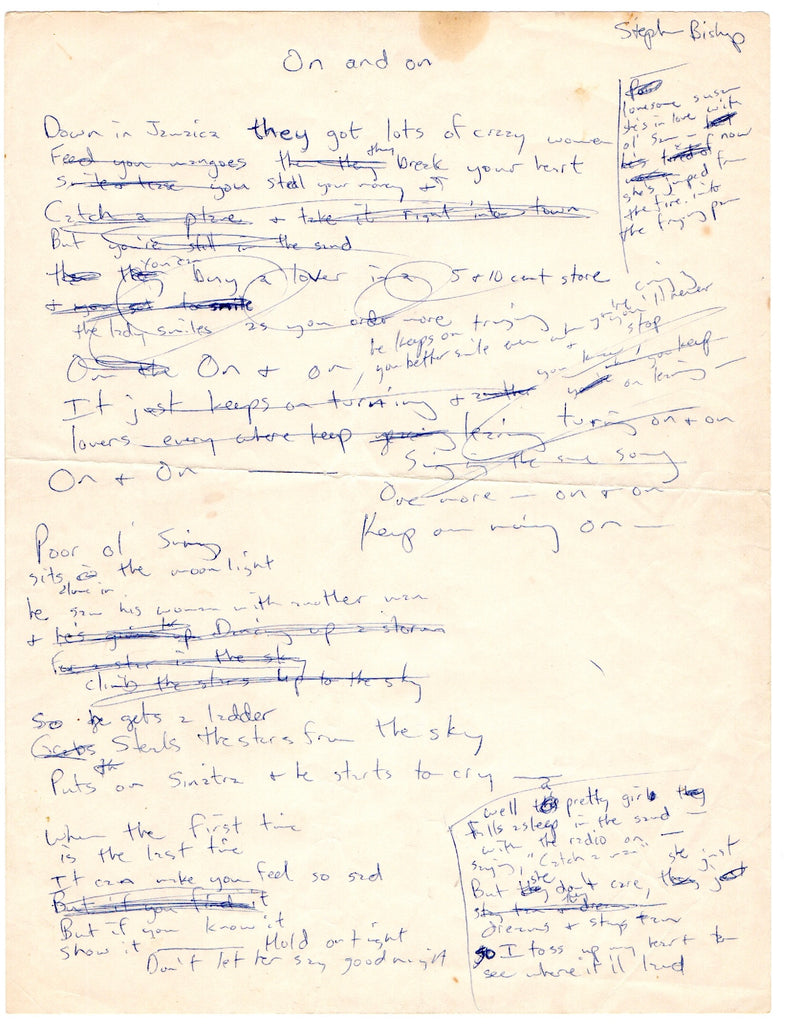 Stephen Bishop
On and on
Down in Jamaica they got lots of crazy women
Feed you mangoes then they they break your heart
Smile & tease you steal your money &
Catch a plane & take it right into town
But you're still in the sand
you can buy a lover in a 5 & 10 cent store
& you got to smile
the lady smiles as you order more
he keeps on trying
you better smile even when you're crying
On the On & on,
It just keeps on turning
lovers every where keep turning on & on
On & On
Sing the same song
One more — on & on
Keep on on —
lonesome susan
she's in love with
ol' Sam
now
she's jumped from
the fire into
the frying pan
Poor ol' Jimmy
sits in the moonlight
alone in
he saw his woman with another man
& he's Dancing up a storm
For a star in the sky
climb the stars up to the sky
So he gets a ladder
Grabs Steals the stars from the sky
Puts on Sinatra & he starts to cry —
When the first time
is the last time
It can make you feel so sad
But if you find it
But if you know it
show it Hold on tight
Don't let her say goodnight
well a pretty girl
falls asleep in the sand —
with the radio on —
saying, "Catch a man"
But she don't care, she just
stay tan & dream
dreams & stays tan
so I toss up my heart to
see where it'll land